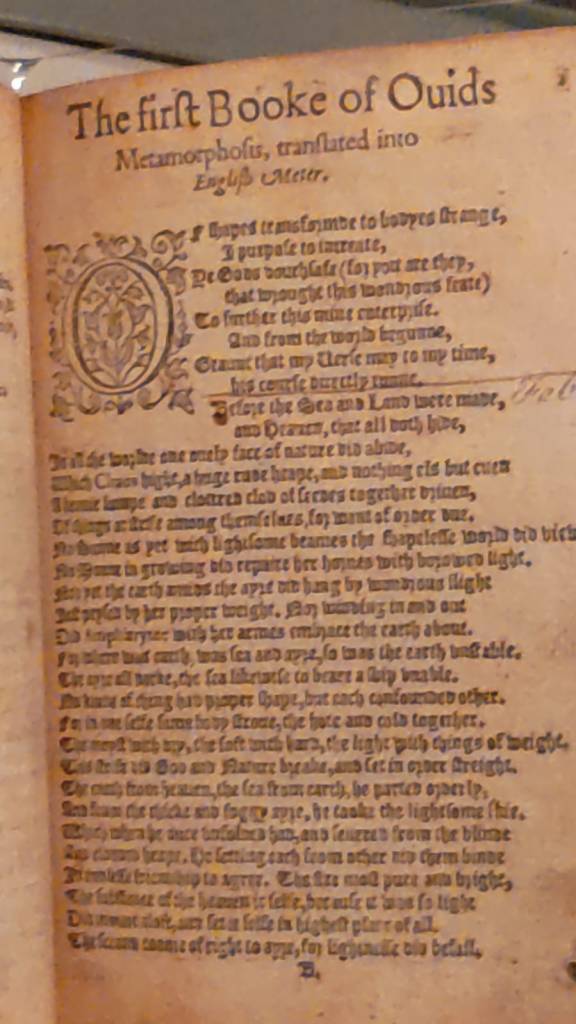 The first Booke of Ouids
Metamorphosis, translated into
English Meter.
OF shapes transformde to bodyes strange,
I purpose to intreate,
Ye Gods vouchsafe (for you are they,
that wrought this wondrous feate)
To further this mine enterprise.
And from the world begunne,
Graunt that my Verse may to my time,
his course directly runne.
Before the Sea and Land were made,
and Heauen, that all doth hide,
In all the worlde one onely face of nature did abide,
Which Chaos hight, a huge rude heape, and nothing els but euen
A heauie lumpe and clottred clod of seedes together driuen,
Of things at strife among themselues, for want of order due.
No Sunne as yet with lightsome beames the shapelesse world did view
No Moone in growing did repaire her hornes with borowed light.
Nor yet the earth amids the ayre did hang by wondrous slight
Iust peysed by her proper weight. Nor winding in and out
Did Amphitrytee with her armes embrace the earth about.
For where was earth, was sea and ayre, so was the earth vnstable.
The ayre all darke, the sea likewise to beare a ship vnable.
No kinde of thing had proper shape, but each confounded other.
For in one selfe same body stroue, the hote and cold together.
The moyst with dry, the soft with hard, the light with things of weight.
This strife did God and Nature breake, and set in order streight.
The earth from heauen, the sea from earth, he parted orderly,
And from the thicke and foggy ayre, he tooke the lightsome skie.
Which when he once vnfolded had, and seuered from the blinde
And clodded heape. He setting each from other did them binde
In endlesse friendship to agree. The fire most pure and bright,
The substance of the heauen it selfe, because it was so light
Did mount aloft, and set it selfe in highest place of all.
The second roome of right to ayre, for lightnesse did befall.
B.
Fab